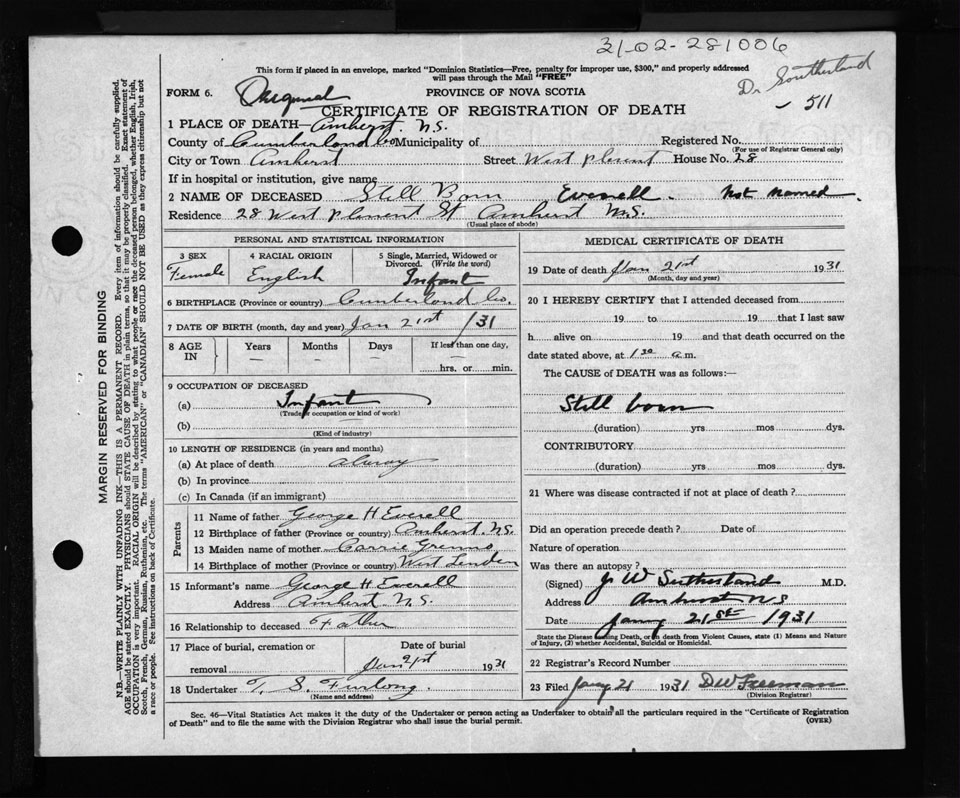 31-02-281006
This form if placed in an envelope, marked "Dominion Statistics—Free, penalty for improper use, $300," and properly addressed
will pass through the Mail "FREE"
Dr Southerland
FORM 6. PROVINCE OF NOVA SCOTIA
- 511
CERTIFICATE OF REGISTRATION OF DEATH
1 PLACE OF DEATH— Amherst. N.S.
County of Cumberland Co Municipality of Registered No.
(For use of Registrar General only)
City or Town Amherst Street West Plesent House No. 28
If in hospital or institution, give name
2 NAME OF DECEASED Still Born Everell. Not named.
Residence 28 West Plesent St Amherst N.S.
(Usual place of abode)
PERSONAL AND STATISTICAL INFORMATION
3 SEX 4 RACIAL ORIGIN 5 Single, Married, Widowed or
Divorced. (Write the word)
Female English Infant
6 BIRTHPLACE (Province or country) Cumberland Co.
7 DATE OF BIRTH (month, day and year) Jan 21st /31
8 AGE IN Years Months Days If less than one day,
— — — hrs. or min.
9 OCCUPATION OF DECEASED
(a) Infant
(Trade, occupation or kind of work)
(b)
(Kind of industry)
10 LENGTH OF RESIDENCE (in years and months)
(a) At place of death
(b) In province
(c) In Canada (if an immigrant)
Parents
11 Name of father George H Everell
12 Birthplace of father (Province or country) Amherst. N.S.
13 Maiden name of mother Carrie
14 Birthplace of mother (Province or country) West Linden
15 Informant's name George H. Everell
Address Amherst N.S.
16 Relationship to deceased Father
17 Place of burial, cremation or Date of burial
removal Jan 21st 1931
18 Undertaker T. S. Furlong.
(Name and address)
MEDICAL CERTIFICATE OF DEATH
19 Date of death Jan 21st 1931
(Month, day and year)
20 I HEREBY CERTIFY that I attended deceased from
19 to 19 that I last saw
h alive on 19 and that death occurred on the
date stated above, at 1 30 a.m.
The CAUSE of DEATH was as follows:—
Still born
(duration) yrs mos dys.
CONTRIBUTORY
(duration) yrs mos dys.
21 Where was disease contracted if not at place of death?
Did an operation precede death? Date of
Nature of operation
Was there an autopsy?
(Signed) J. W Sutherland M.D.
Address Amherst N S
Date Jany 21st 1931
State the Disease causing Death, or in death from Violent Causes, state (1) Means and Nature
of Injury, (2) whether Accidental, Suicidal or Homicidal.
22 Registrar's Record Number
23 Filed Jany 21 1931 D W Freeman
(Division Registrar)
Sec. 46—Vital Statistics Act makes it the duty of the Undertaker or person acting as Undertaker to obtain all the particulars required in the "Certificate of Registration
of Death" and to file the same with the Division Registrar who shall issue the burial permit. (OVER)
MARGIN RESERVED FOR BINDING
N.B.—WRITE PLAINLY WITH UNFADING INK—THIS IS A PERMANENT RECORD. Every item of information should be carefully supplied.
AGE should be stated EXACTLY. PHYSICIANS should STATE CAUSE OF DEATH in plain terms, so that it may be properly classified. Exact statement of
OCCUPATION is very important. RACIAL ORIGIN will be described by stating to what people or race the deceased person belonged, whether English, Irish,
Scotch, French, German, Russian, Ruthenian, etc. The terms "AMERICAN" or "CANADIAN" SHOULD NOT BE USED as they express citizenship but not
a race or people. See instructions on back of Certificate.